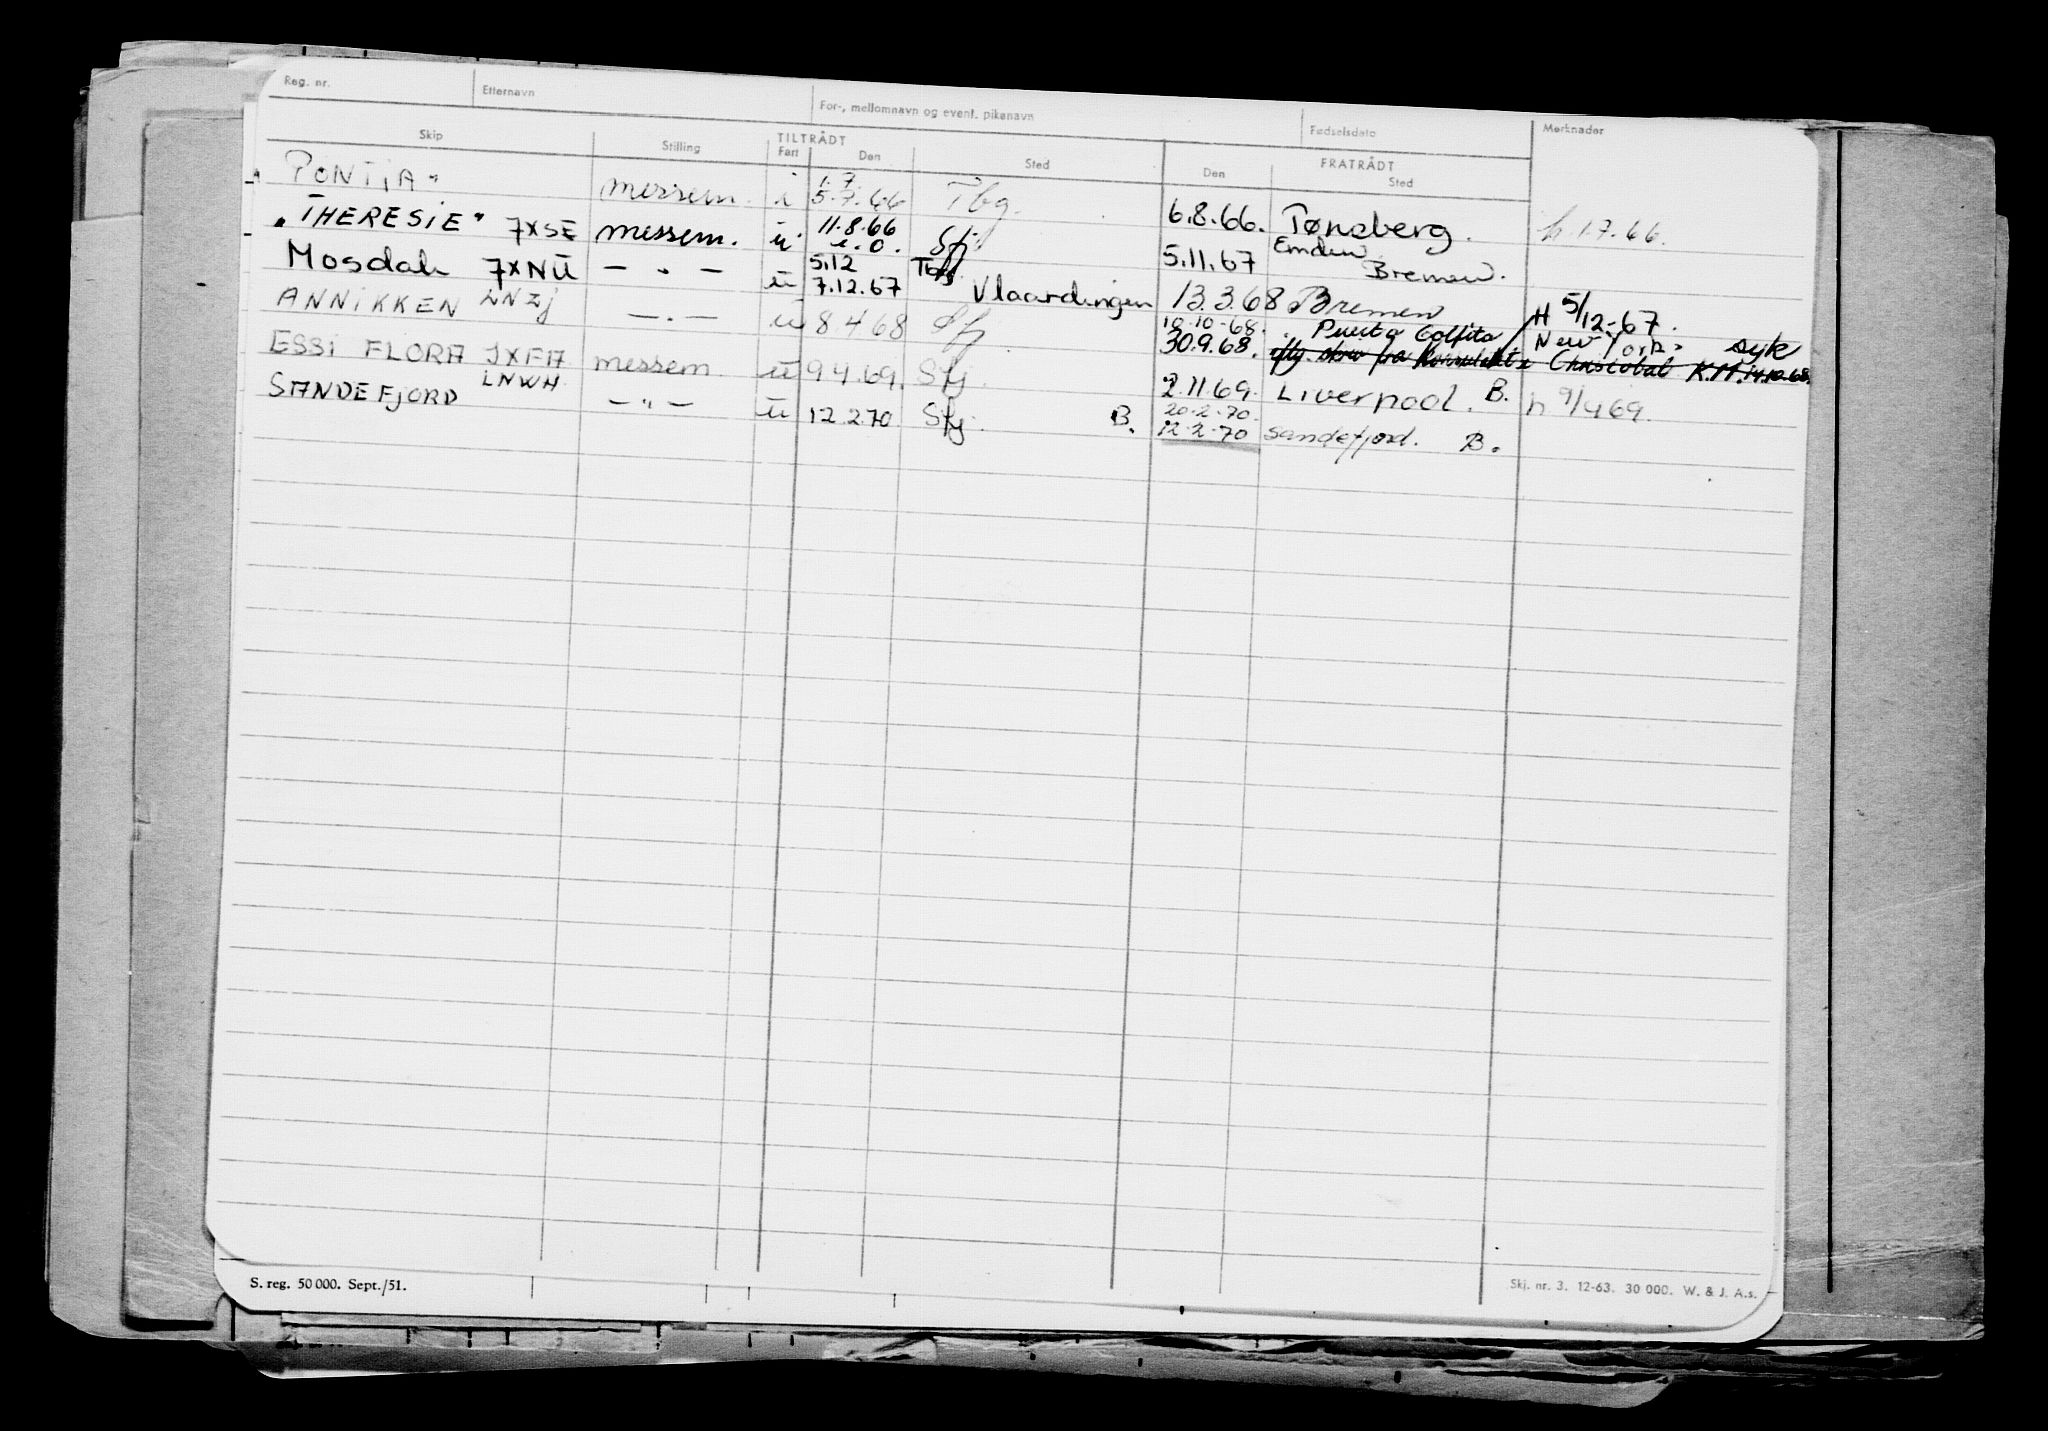 Reg. nr. Etternavn For-, mellomnavn og event. pikenavn Fødselsdato Merknader
Skip Stilling TILTRÅDT Fart Den Sted FRATRÅDT Den Sted
PONTIA" messem. i 1.7 5.7.66 Tbg. 6.8.66. Tønsberg. h. 1.7.66.
"THERESIE" 7XSE messem. ü 11.8.66 u.o. Sfj 5.11.67 Emden Bremen.
Mosdale 7XNU — " — ü 5.12 7.12.67 Tbg Vlaardingen 13.3.68 Bremen H 5/12-67.
ANNIKKEN LNZJ — " — ü 8 4 68 Sfj. 10-10-68. 30.9.68. Punta Golfito / New York syk
eftg. skriv fra Konsulatet i Christobal K.M. 14.10.68.
ESSI FLORA JXFA messem ü 9 4.69. Sfj. 2.11.69. Liverpool. B. h 9/4 69.
SANDEFJORD LNWH — " — ü 12 2.70 Sfj. B. 20-2-70. 12-2-70 Sandefjord. B.
S. reg. 50 000. Sept./51. Skj. nr. 3. 12-63. 30 000. W. & J. A.s.